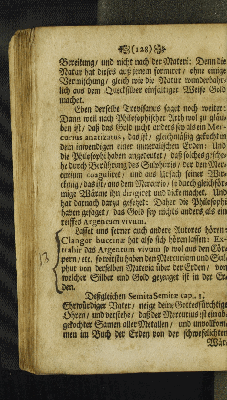 (128)
Bereitung / und nicht nach der Materi: Denn die
Natur hat dieses auß jenem formiret / ohne einige
Vermischung / gleich wie die Natur wunderbahr-
lich aus dem Quecksilber einfältiger Weise Gold
machet.
Eben derselbe Trevisanus saget noch weiter:
Dann weil nach Philosophischer Arth wol zu glau-
ben ist / daß das Gold nicht anders sey als ein Mer-
curius anatizatus, das ist / gleichmäßig gekochet in
dem inwendigen einer mineralischen Erden: Und
die Philosophi haben angedeutet / daß solches gesche-
he durch Berührung des Sulphuris, der den Mer-
curium coaguliret / und aus Ursach seiner Wür-
ckung / das ist / aus dem Mercurio / ie durch gleichför-
mige Wärme ihn dirigiret und dicke machet. Und
hat darnach darzu gesetzet: Daher die Philosophi
haben gesaget / das Gold sey nichts anders als ein
reiffes Argentum vivum.
Lasset uns ferner auch andere Autores hören:
Clangor buccinæ hat also sich hören lassen: Ex-
trahir das Argentum vivum so wol aus den Cör-
pern / etc. so wirstu haben den Mercurium und Sul-
phur von derselben Materia über der Erden / von
welcher Silber und Gold gezeuget ist in der Er-
den.
Deßgleichen Semita Semitæ cap. 1.
Ehrwürdiger Vater / neige deine Gottesfürchtige
Ohren / und verstehe / daß der Mercurius ist ein ab-
gekochter Samen aller Metallen / und unvollkom-
men im Buch der Erden von der schwefelichten
Wär-